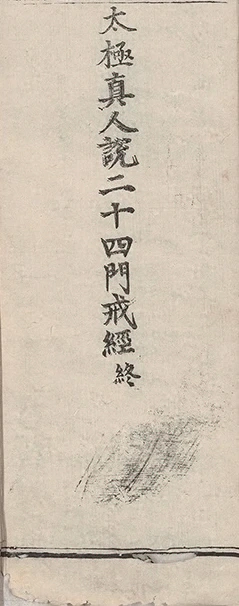 太極真人說二十四門戒經終